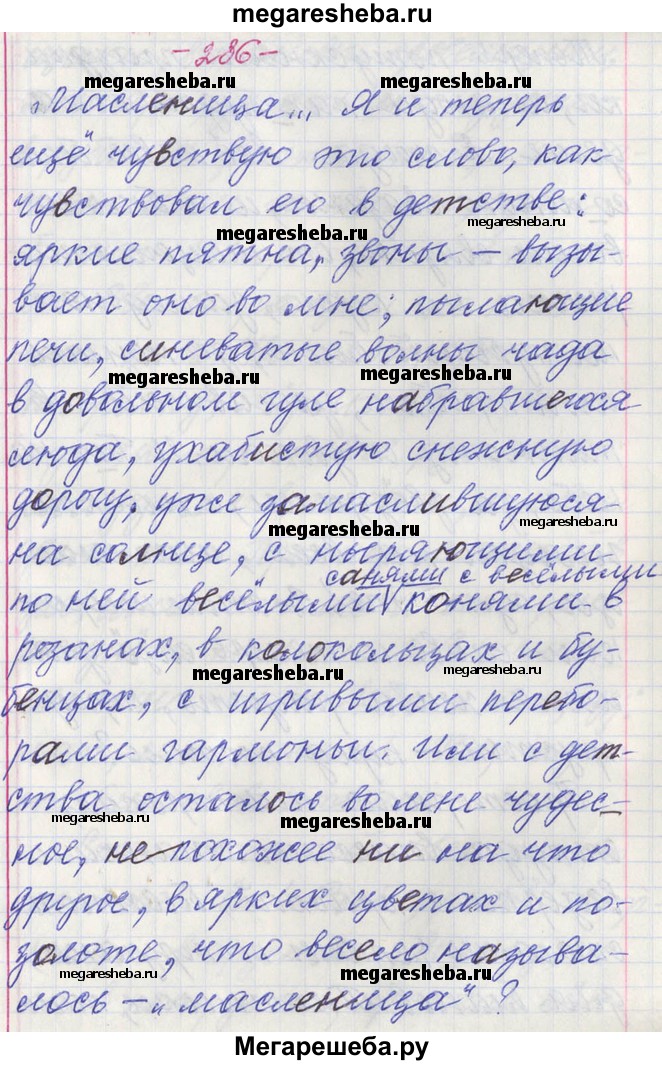 megaresheba.ru
- 236 -
megaresheba.ru
megaresheba.ru
„Масленица... Я и теперь
ещё" чувствую это слово, как
чувствовал его в детстве:
megaresheba.ru
megaresheba.ru
яркие пятна, звоны – вызы-
вает оно во мне; пылающие
печи, синеватые волны чада
megaresheba.ru
megaresheba.ru
в довольном гуле набравшегося
люда, ухабистую снежную
дорогу, уже замаслившуюся
megaresheba.ru
megaresheba.ru
на солнце, с ныряющими
санями с весёлыми
по ней весёлыми конями в
розанах, в колокольцах и бу-
megaresheba.ru
megaresheba.ru
бенцах, с игривыми перебо-
рами гармоньи. Или с дет-
ства осталось во мне чудес-
megaresheba.ru
megaresheba.ru
ное, не похожее ни на что
другое, в ярких цветах и по-
золоте, что весело называ-
megaresheba.ru
megaresheba.ru
лось – „масленица"?
Мегарешеба.ру